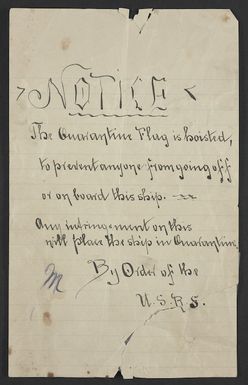 NOTICE
The Quarantine Flag is hoisted,
to prevent anyone from going off
or on board this ship.
Any infringement on this
will place the ship in Quarantine
By Order of the
U.S.R.S.